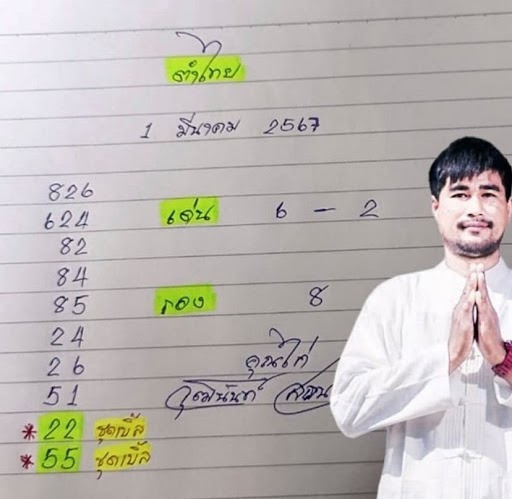 ลำไย
1 มีนาคม 2567
826
624 เด่น 6 - 2
82
84
85 รอง 8
24
26
51
* 22 ชุดเบิ้ล
* 55 ชุดเบิ้ล